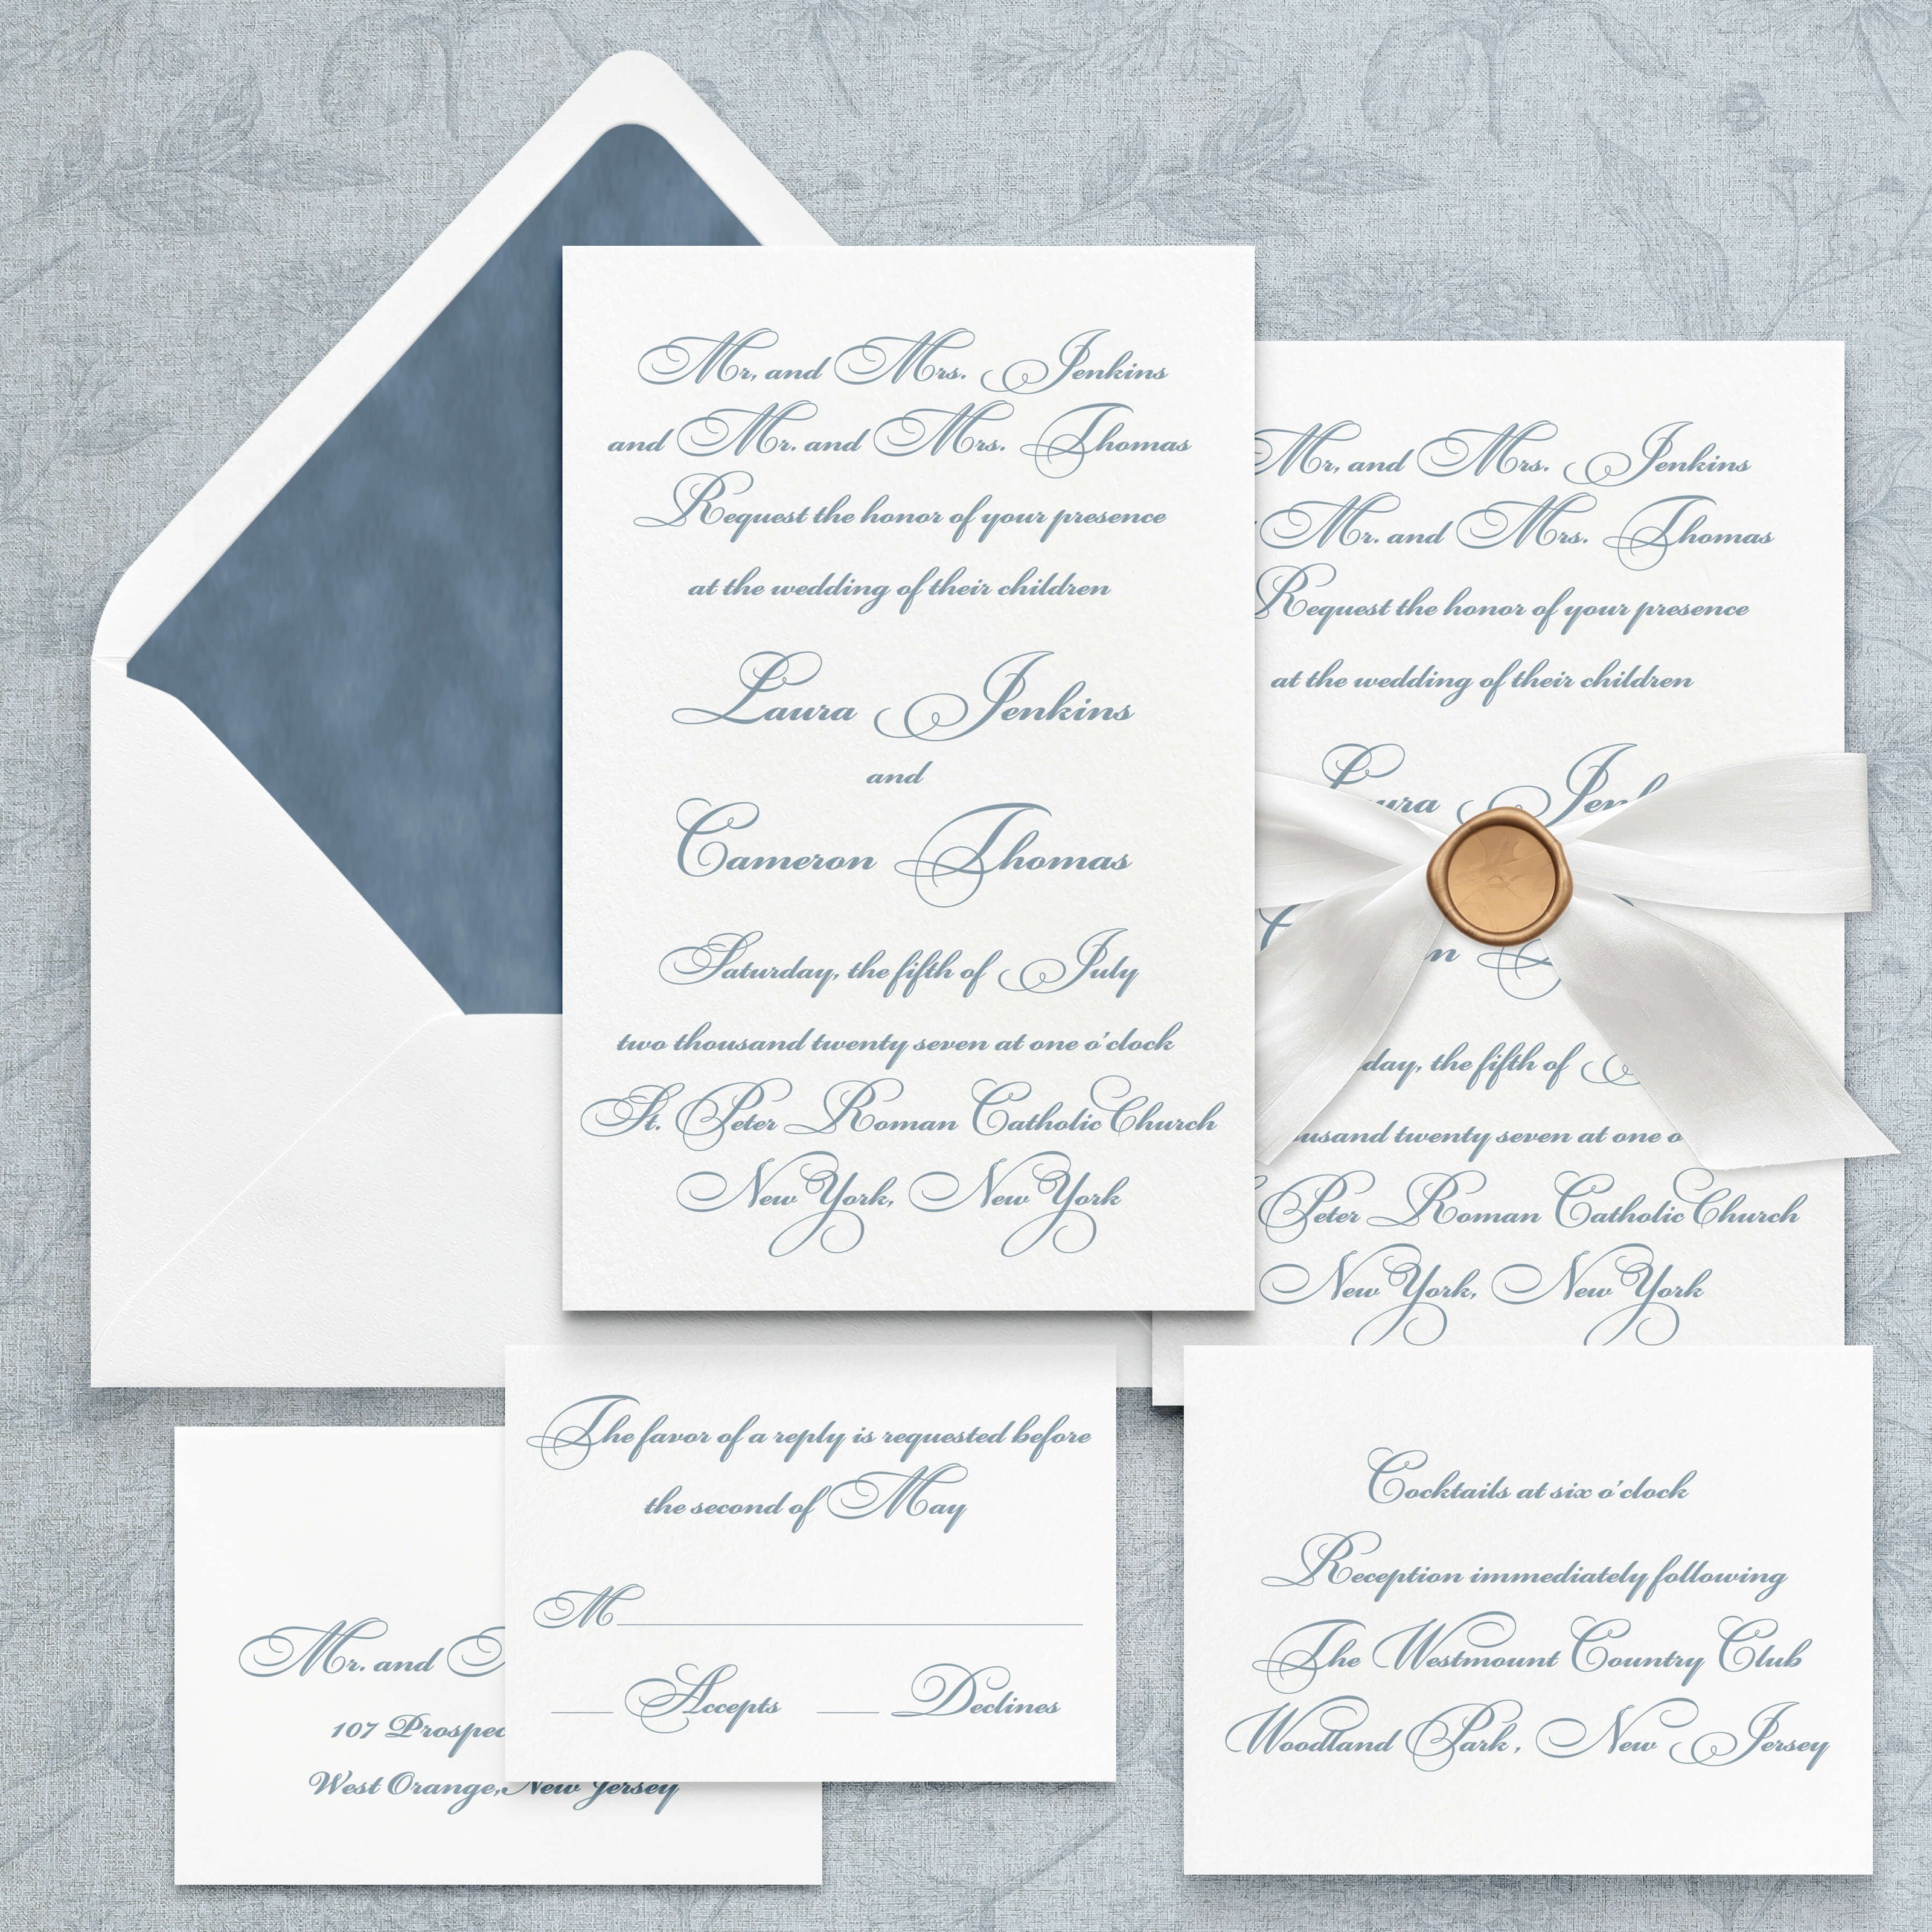 Mr, and Mrs. Jenkins
and Mr. and Mrs. Thomas
Request the honor of your presence
at the wedding of their children
Laura Jenkins
and
Cameron Thomas
Saturday, the fifth of July
two thousand twenty seven at one o'clock
St. Peter Roman Catholic Church
New York, New York
Mr, and Mrs. Jenkins
Mr. and Mrs. Thomas
Request the honor of your presence
at the wedding of their children
the fifth of
twenty seven at one
Peter Roman Catholic Church
New York, New York
The favor of a reply is requested before
the second of May
M
Accepts Declines
Mr. and
107
West Orange, New Jersey
Cocktails at six o'clock
Reception immediately following
The Westmount Country Club
Woodland Park, New Jersey